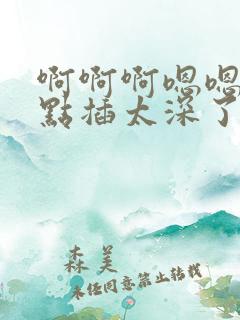 啊啊啊嗯嗯
點插太深了
森美
未任同意禁止转载